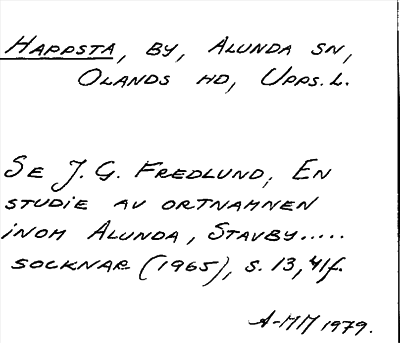 HAPPSTA, BY, ALUNDA SN,
OLANDS HD, UPPS. L.
SE J. G. FREDLUND, EN
STUDIE AV ORTNAMNEN
INOM ALUNDA, STAVBY.....
SOCKNAR (1965), S. 13, 41f.
A-MM 1979.